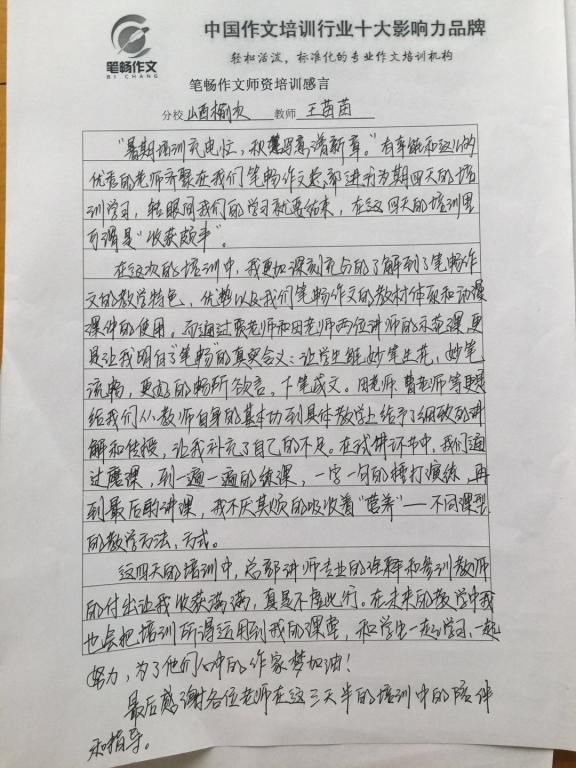 笔畅作文
BI CHANG
中国作文培训行业十大影响力品牌
轻松活泼，标准化的专业作文培训机构
笔畅作文师资培训感言
分校 山西榆次 教师 王苗苗
"暑期培训充电忙，秋季写意谱新章。"有幸能和这么的
优秀的老师齐聚在我们笔畅作文总部进行为期四天的培
训学习，转眼间我们的学习就要结束，在这四天的培训里
可谓是"收获颇丰"。
在这次的培训中，我更加深刻充分的了解到了笔畅作
文的教学特色，优势以及我们笔畅作文的教材体系和动漫
课件的使用。而通过贾老师和田老师两位讲师的示范课，更
是让我明白了"笔畅"的真实含义：让学生能妙笔生花，妙笔
流畅，更好的畅所欲言，下笔成文。田老师、曹老师等更是
给我们从教师自身的基本功到具体教学上给予了细致的讲
解和传授，让我补充了自己的不足。在试讲环节中，我们通
过磨课，到一遍一遍的练课，一字一句的捶打演练，再
到最后的讲课，我不厌其烦的吸收着"营养"——不同课型
的教学方法，方式。
这四天的培训中，总部讲师专业的诠释和参训教师
的付出让我收获满满，真是不虚此行。在未来的教学中我
也会把培训所得运用到我的课堂，和学生一起学习，一起
努力，为了他们心中的作家梦加油！
最后感谢各位老师在这三天半的培训中的陪伴
和指导。